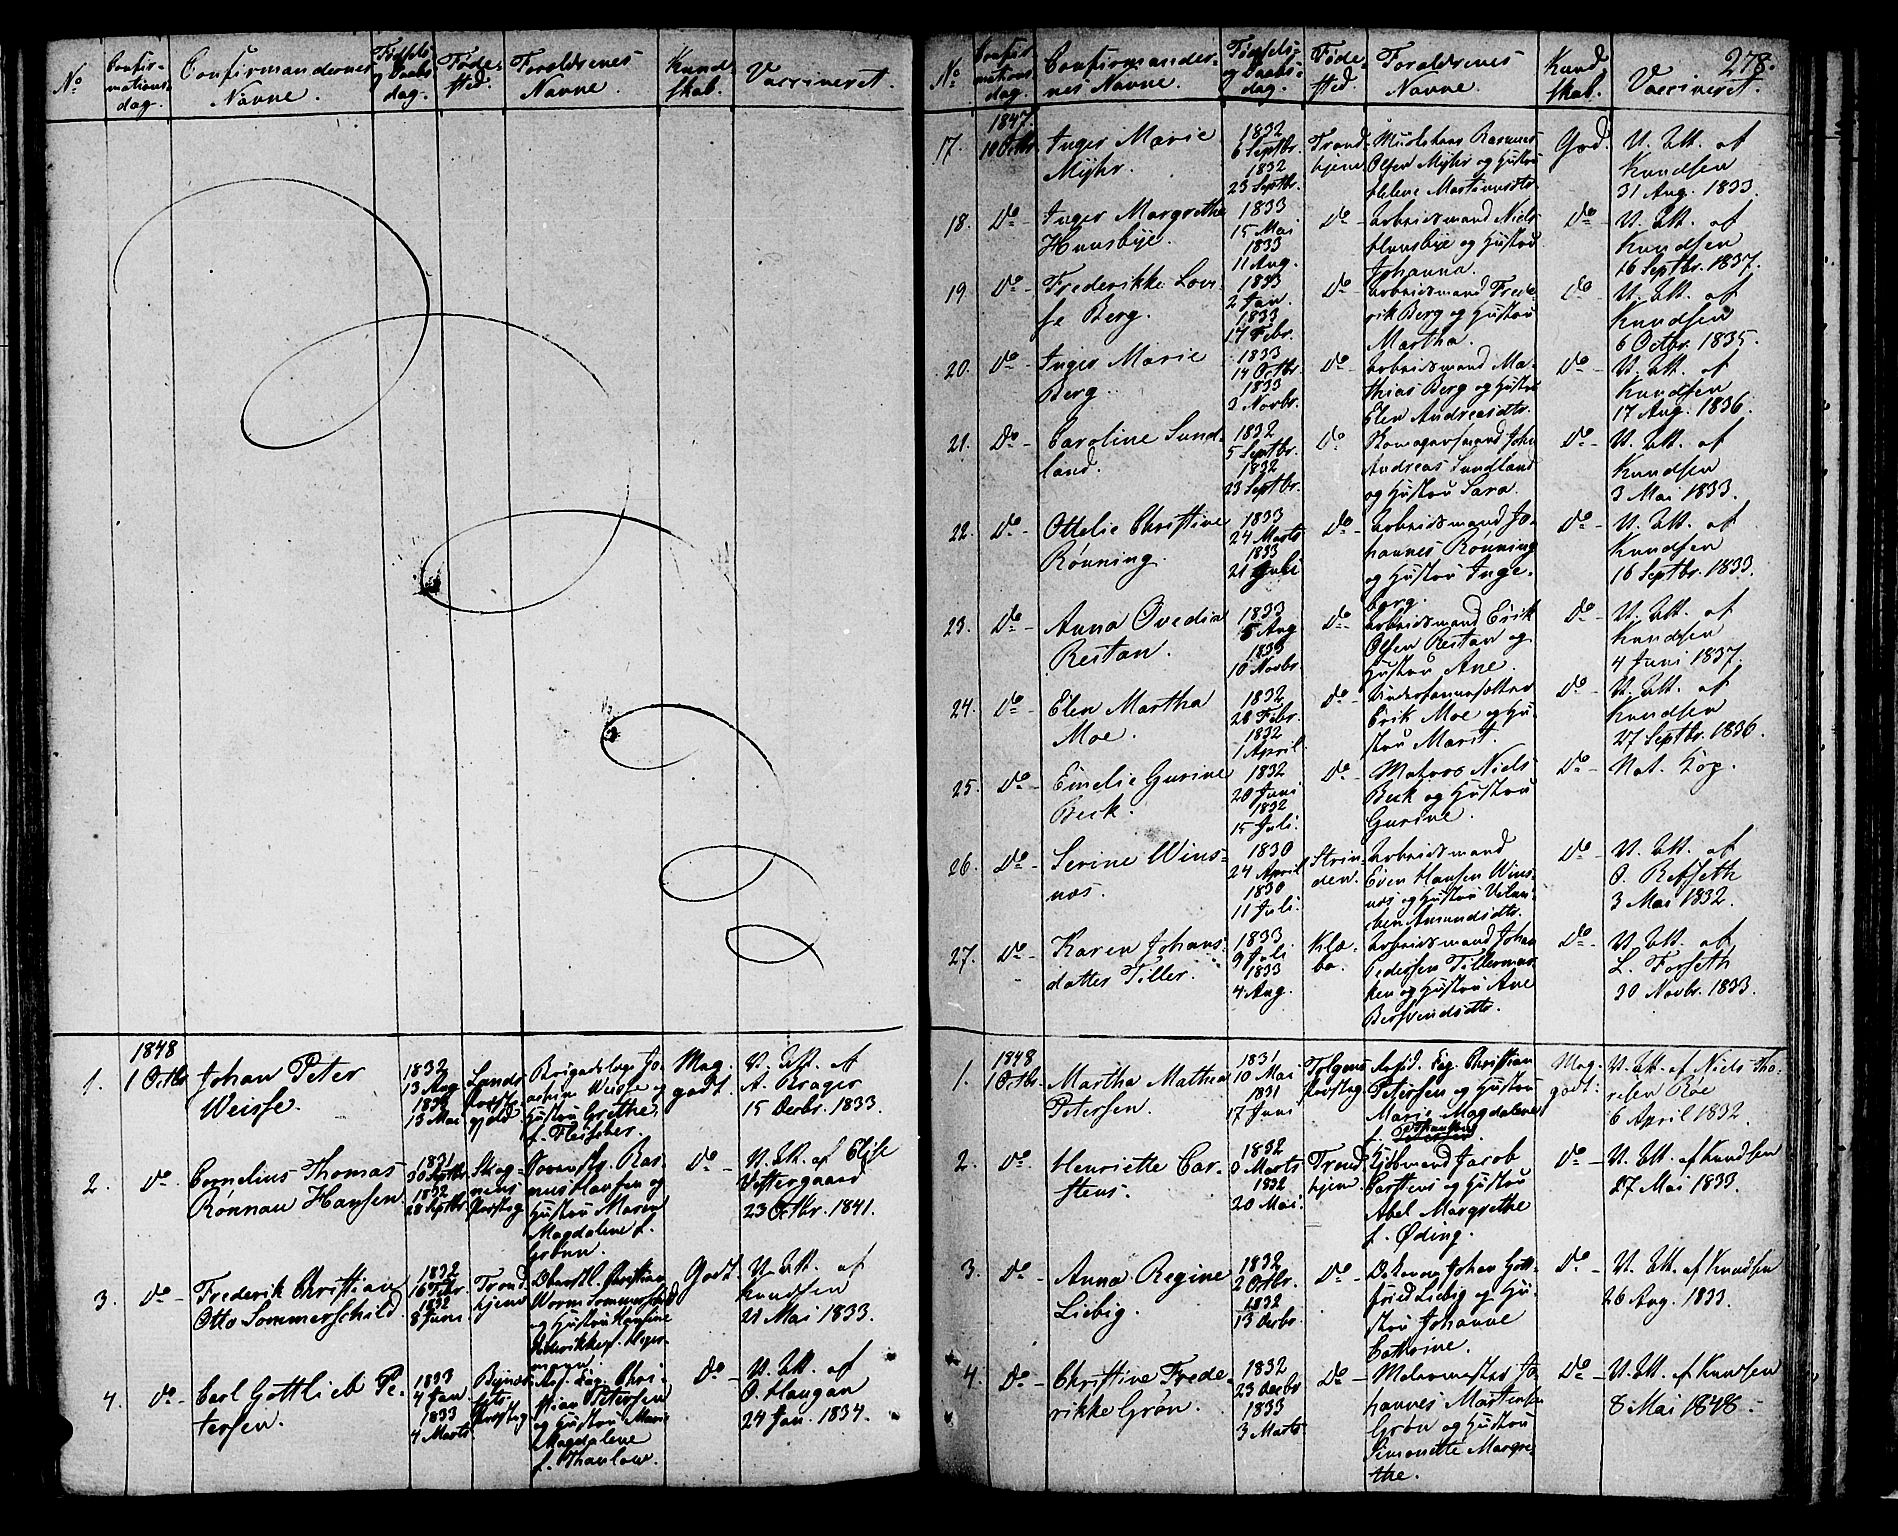 No
Confir-
mations-
dag.
Confirmandernes
Navne.
Fødsels
og Daabs
dag.
Føde-
sted.
Forældrenes
Navne.
Kund
skab.
Vaccineret.
1848
1.
1 Octbr
Johan Peter
Weisse.
1832
13 Aug
13 Mai
Brigadelæge Jo-
achim Weisse og
Hustru Grethe
f. Fleischer.
Mag.
godt.
V. Att. af
A. Krager
15 Decbr. 1833.
2.
Do
Cornelius Thomas
Rønnau Hansen
1831
30 Septbr.
1832
28 Septbr.
Skog-
nens
Præsteg
Sorenskr. Ras-
mus Hansen og
Hustru Maren
Magdalene f.
Grønn.
Do
V. Att. af Elise
Vestergaard
23 Octbr. 1841.
3.
Do
Frederik Christian
Otto Sommerschild
1832
16 Febr.
1832
8 Juni
Trond
hjem
Oberstl. Christian
Worm Sommerschild
og Hustru Hansine
Frederikke f. Heger-
mann.
Godt
V. Att. af
Knudsen
21 Mai 1833.
4.
Do
Carl Gottlieb Pe-
tersen.
1833
4 Jan
1833
4 Marts
Bynes-
sets
Præsteg
Res. Cap. Chri-
stian Petersen
og Hustru Marie
Magdalene
f. Thaulow.
Do
V. Att. af
O. Haugan
24 Jan. 1834.
278.
No
Confir
mations
dag.
Confirmander-
nes Navne.
Fødsels-
og Daabs-
dag.
Føde-
sted.
Forældrenes
Navne.
Kund
skab.
Vaccineret.
1847.
17.
10 Octbr.
Inger Marie
Myhr.
1832
6 Septbr.
1832
23 Septbr.
Trond-
hjem
Muurhans Rasmus
Olsen Myhr og Hustru
Helene Martinusdtr.
God.
V. Att. af
Knudsen
31 Aug. 1833.
18.
Do
Inger Margrethe
Huusbye.
1833
15 Mai
1833
11 Aug.
Do
Arbeidsmand Niels
Huusbye og Hustru
Johanna.
Do
V. Att. af
Knudsen
16 Septbr. 1837.
19
Do
Frederikke Lovi-
se Berg.
1833
2 Jan.
1833
14 Febr.
Do
Arbeidsmand Frede-
rik Berg og Hustru
Martha.
Do
V. Att. af
Knudsen
6 Octbr. 1835.
20.
Do
Inger Marie
Berg
1833
14 Octbr.
1833
3 Novbr.
Do
Arbeidsmand Ma-
thias Berg og Hustru
Elen Andreasdtr.
Do
V. Att. af
Knudsen
17 Aug. 1836.
21.
Do
Caroline Sund-
land.
1832
5 Septbr.
1832
23 Septbr.
Do
Skomagersvend John
Andreas Sundland
og Hustru Sara.
Do
V. Att. af
Knudsen
3 Mai 1833.
22.
Do
Ottelie Christine
Rønning.
1833
24 Marts
1833
21 Juli
Do
Arbeidsmand Jo-
hannes Rønning
og Hustru Inge-
borg.
Do
V. Att. af
Knudsen
16 Septbr. 1833.
23.
Do
Anna Ovedia
Restan.
1833
5 Aug
1833
10 Novbr.
Do
Arbeidsmand Erik
Olsen Restan og
Hustru Ane.
Do
V. Att. af
Knudsen
4 Juni 1837.
24.
Do
Elen Martha
Moe.
1832
28 Febr.
1832
1 April
Do
Erik Moe og Hu-
stru Marit.
Do
V. Att. af
Knudsen
27 Septbr. 1836.
25.
Do
Emelie Gurine
Beck.
1832
20 Juni
1832
15 Juli.
Do
Matros Niels
Beck og Hustru
Gurine.
Do
Nat. Kop.
26.
Do
Serine Wins-
næs.
1830
24 April
1830
11 Juli.
Strin-
den.
Arbeidsmand
Even Hansen Wins-
næs og Hustru
Amundsdtr.
Do
V. Att. af
O. Refseth
3 Mai 1832.
27.
Do
Karen Johans-
datter Tiller.
1833
9 Juli
1833
4 Aug.
Klæ-
bo.
Arbeidsmand Johan
Pedersen Tillermar-
ken og Hustru Ane
Bersvendsdtr.
Do
V. Att. af
L. Forseth
30 Novbr. 1833.
1848
1.
1 Octbr.
Martha Mathea
Petersen.
1831
10 Mai
1831
17 Juni
Tolgens
Præsteg
Resid. Cap. Christian
Petersen og Hustru
Marie Magdalene
f. Thaulow
Mag.
godt.
V. Att. af Niels Tho-
resen Røe
6 April 1832
2.
Do
Henriette Car-
stens.
1832
8 Marts
1832
20 Mai.
Trond-
hjem.
Kjøbmand Jacob
Carstens og Hustru
Abel Margrethe
f. Øding.
Do
V. Att. af Knudsen
27 Mai 1833.
3.
Do
Anna Regine
Liebig.
1832
2 Octbr.
1832
13 Decbr.
Do
Johan Gott-
fried Liebig og Hu-
stru Johanne
Cathrine.
Do
V. Att. af Knudsen
26 Aug. 1833.
4.
Do
Christine Frede-
rikke Grøn.
1832
23 Decbr
1833
3 Marts
Do
Malermester Jo-
hannes Martinsen
Grøn og Hustru
Simonette Margre-
the.
Do
V. Att. af Knudsen
8 Mai 1848.